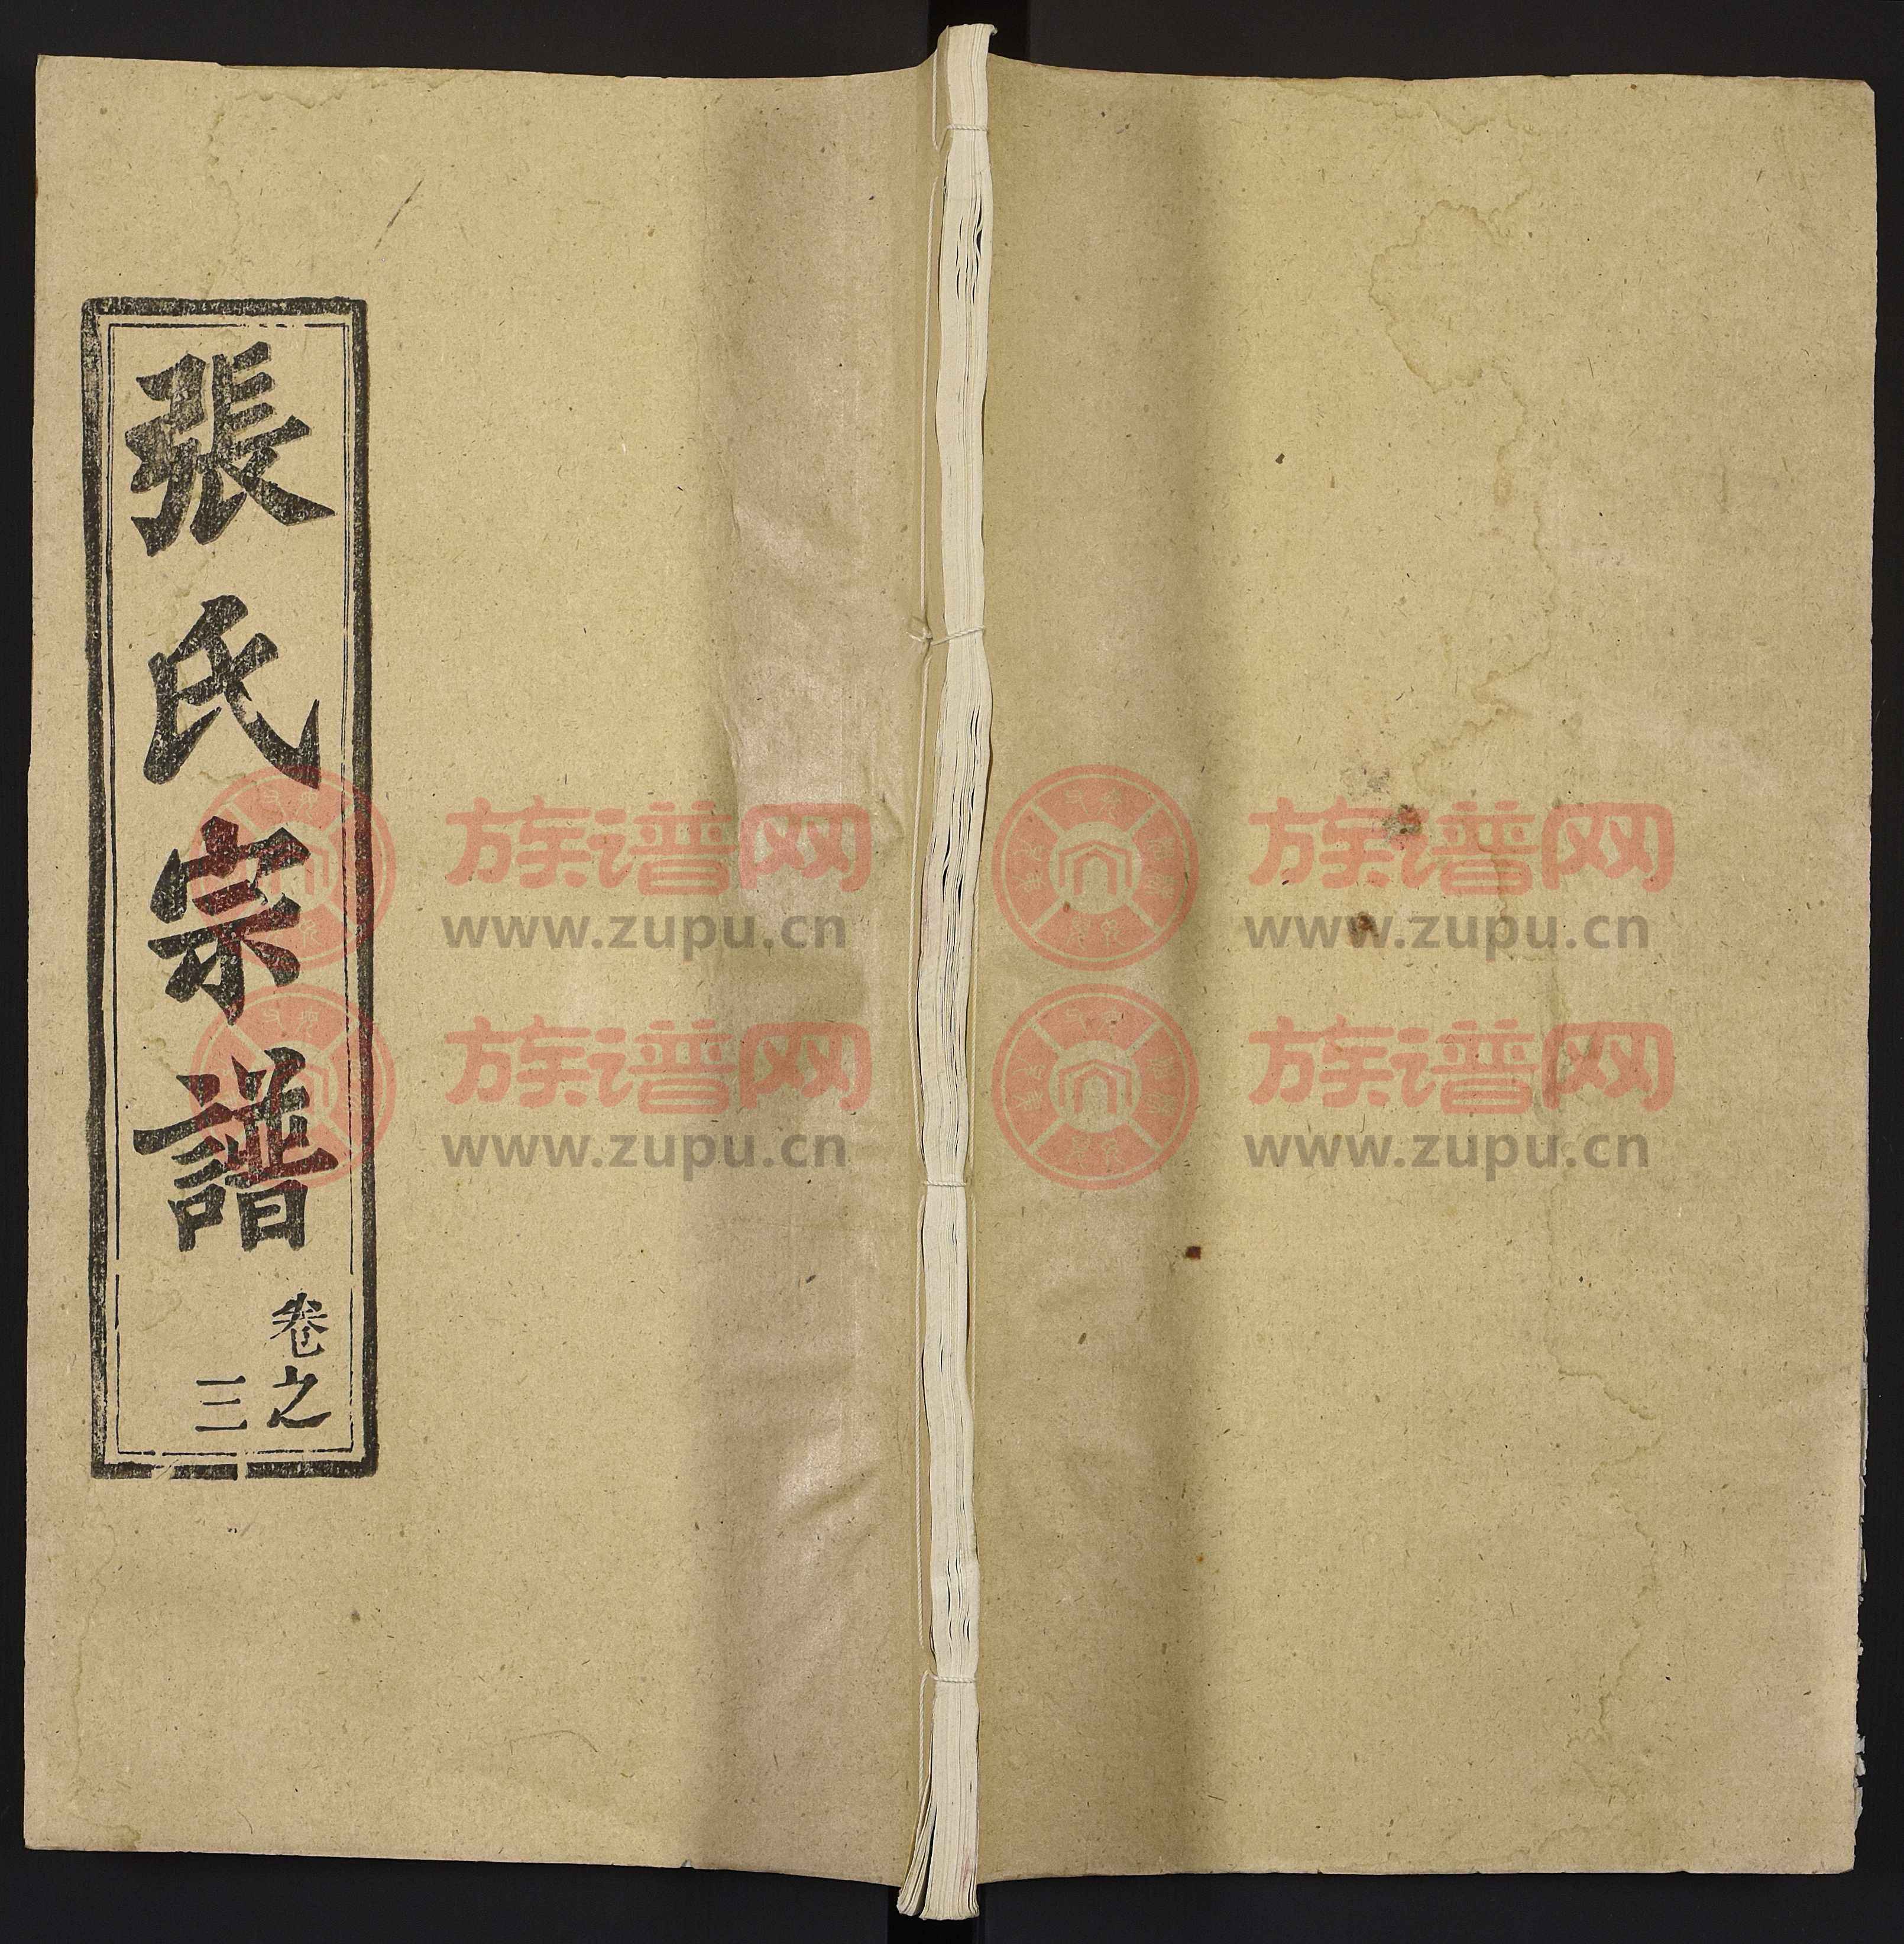 張氏宗譜
卷之
三
族谱网
www.zupu.cn
族谱网
www.zupu.cn
族谱网
www.zupu.cn
族谱网
www.zupu.cn